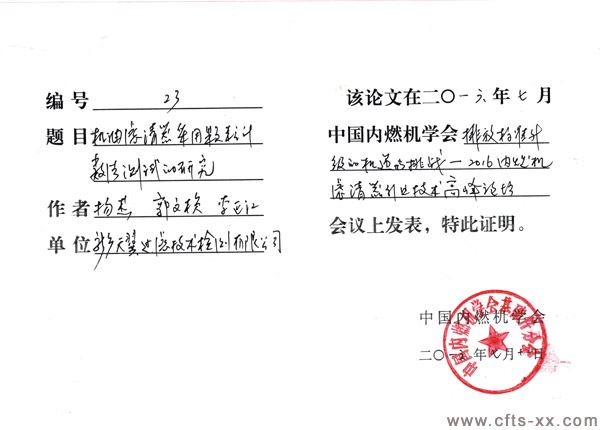 编号 23
题目 机油滤清器单用颗粒计
数法测试的研究
作者 杨杰 郭文模 李正江
单位 新乡天翼过滤技术检测有限公司
该论文在二〇一六年七月
中国内燃机学会 排放标准升
级的机遇与挑战—2016内燃机
滤清器行业技术高峰论坛
会议上发表，特此证明。
中国内燃机学会
二〇一六年七月 日
中国内燃机学会基础件分会
www.cfts-xx.com